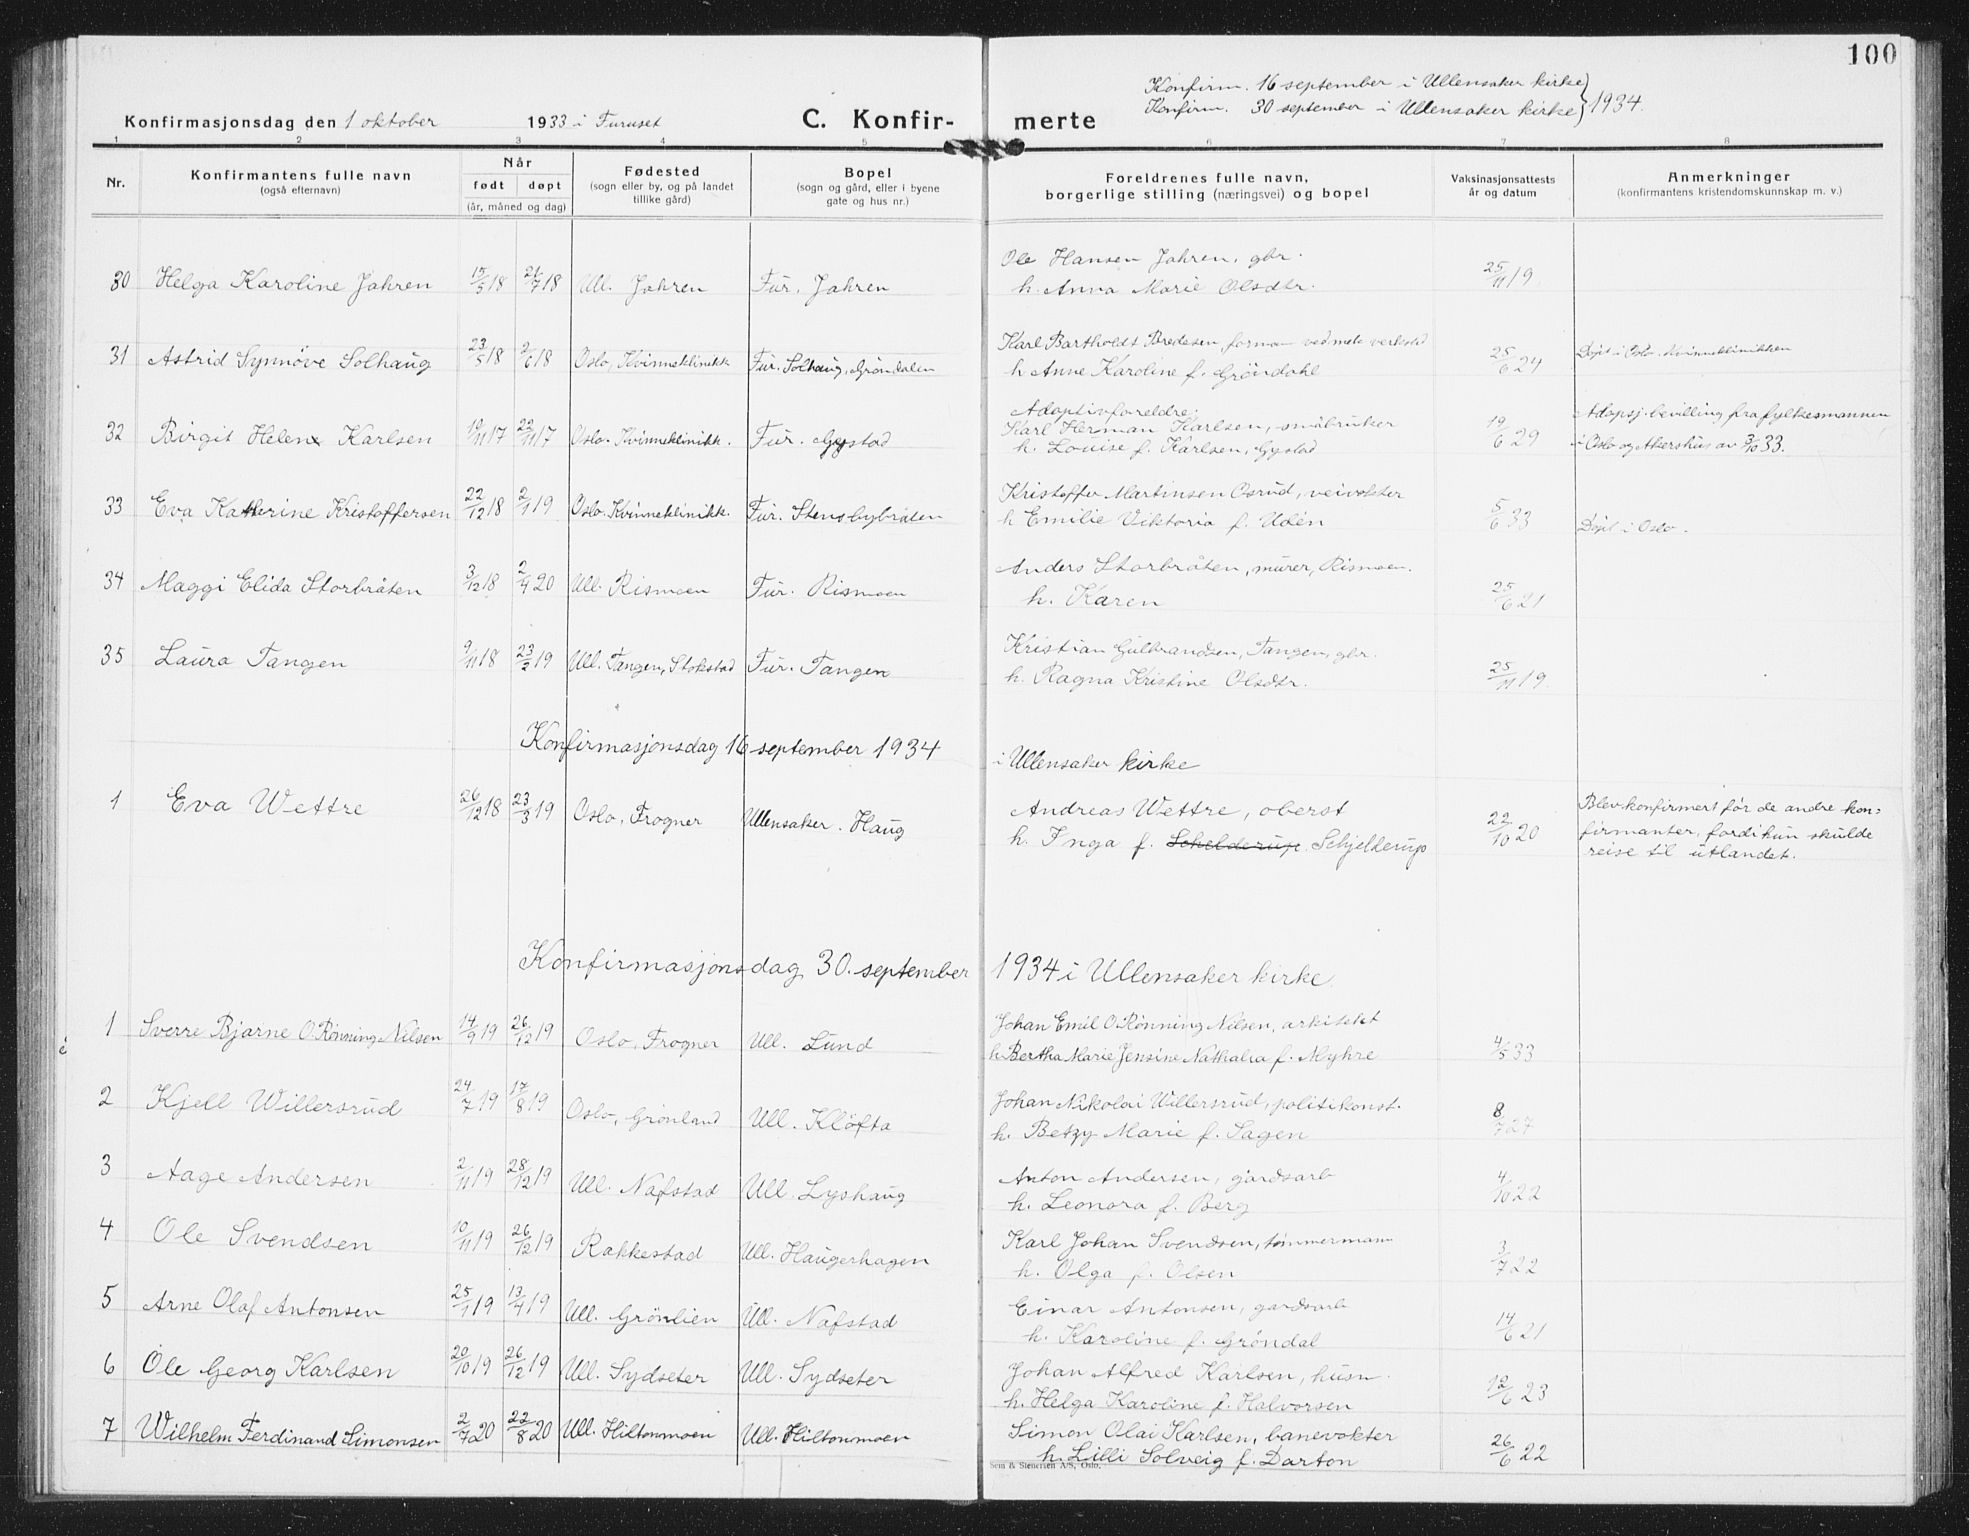 100
Konfirm. 16 september i Ullensaker kirke } 1934.
Konfirm. 30 september i Ullensaker kirke
Konfirmasjonsdag den 1 oktober 1933 i Furuset C. Konfir- merte
1 2 3 4 5 6 7 8
Nr. Konfirmantens fulle navn (også efternavn) Når født døpt (år, måned og dag) Fødested (sogn eller by, og på landet tillike gård) Bopel (sogn og gård, eller i byene gate og hus nr.) Foreldrenes fulle navn, borgerlige stilling (næringsvei) og bopel Vaksinasjonsattests år og datum Anmerkninger (konfirmantens kristendomskunnskap m. v.)
Ole Hansen Jahren, gbr.
30 Helga Karoline Jahren 15/5 18 21/7 18 Ull. Jahren Fur. Jahren h. Anna Marie Olsdtr. 25/11 19
Karl Bartholdt Bredesen, forman ved mek verksted
31 Astrid Synnöve Solhaug 23/5 18 2/6 18 Oslo, Kvinneklinikk Fur. Solhaug, Gröndalen h Anne Karoline f. Gröndahl 25/6 24 Döpt i Oslo. Kvinneklinikken
Adoptivforeldre:
Karl Herman Karlsen, småbruker
32 Birgit Helene Karlsen 19/11 17 22/11 17 Oslo. Kvinneklinikk. Fur. Gystad h. Louise f. Karlsen, Gystad 19/6 29 Adopsj. bevilling fra fylkesmannen
i Oslo og Akershus av 3/10 33.
Kristoffer Martinsen Osrud, veivokter
33 Eva Katherine Kristoffersen 22/12 18 2/1 19 Oslo. Kvinneklinikk. Fur. Stensbybråten h Emilie Viktoria f. Udén 5/6 33 Döpt i Oslo.
Anders Storbråten, murer, Rismoen.
34 Maggi Elida Storbråten 3/12 18 2/4 20 Ull. Rismoen Fur. Rismoen h. Karen 25/6 21
Kristian Gulbrandsen, Tangen, gbr.
35 Laura Tangen 9/11 18 23/2 19 Ull. Tangen, Stokstad Fur. Tangen h. Ragna Kristine Olsdtr. 25/11 19.
Konfirmasjonsdag 16 september 1934 i Ullensaker kirke
1 Eva Wettre 26/12 18 23/3 19 Oslo, Frogner Ullensaker. Haug Andreas Wettre, oberst 22/10 20 Blev konfirmert för de andre kon=
h. Inga f. Schelderup. Schjelderup firmanter, fordi hun skulde
reise til utlandet.
Konfirmasjonsdag 30. september 1934 i Ullensaker kirke.
1 Sverre Bjarne O. Rönning Nilsen 14/9 19 26/12 19 Oslo, Frogner Ull. Lund Johan Emil O. Rönning Nilsen, arkitekt
h. Bertha Marie Jensine Nathalia f. Myhre 4/5 33
2 Kjell Willersrud 24/7 19 17/8 19 Oslo, Grönland Ull. Klöfta Johan Nikolai Willersrud, politikonst.
h. Betzy Marie f. Sagen 8/7 27
3 Aage Andersen 2/11 19 28/12 19 Ull. Nafstad Ull. Lyshaug Anton Andersen, gårdsarb
h. Leonora f. Berg 4/10 22
4 Ole Svendsen 10/11 19 26/12 19 Rakkestad Ull. Haugerhagen Karl Johan Svendsen, tömmermann
h. Olga f. Olsen 3/7 22
5 Arne Olaf Antonsen 25/1 19 13/4 19 Ull. Grönlien Ull. Nafstad Einar Antonsen, gardsarb
h. Karoline f. Gröndal 14/6 21
6 Ole Georg Karlsen 20/10 19 26/12 19 Ull. Sydseter Ull. Sydseter Johan Alfred Karlsen, husm.
h. Helga Karoline f. Halvorsen 12/6 23
7 Wilhelm Ferdinand Simonsen 2/7 20 22/8 20 Ull. Hiltonmoen Ull. Hiltonmoen Simon Olai Karlsen, banevokter
h. Lilli Solveig f. Darton 26/6 22
Sem & Stenersen A/S, Oslo.